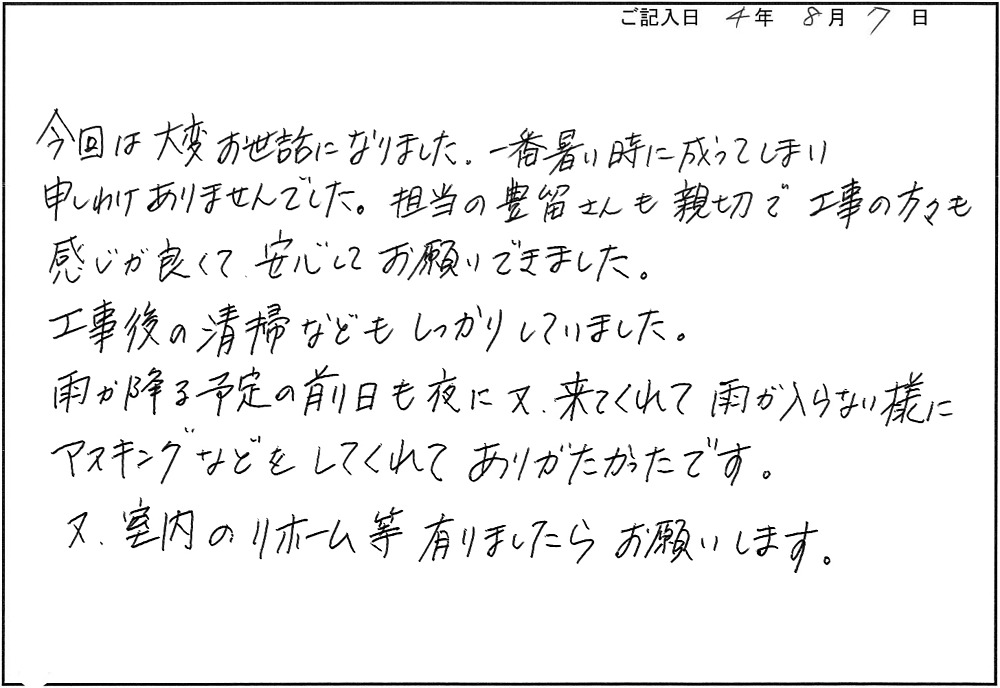 ご記入日 4年 8月 7日
今回は大変お世話になりました。一番暑い時に成ってしまい
申しわけありませんでした。担当の豊留さんも親切で工事の方々も
感じが良くて、安心してお願いできました。
工事後の清掃などもしっかりしていました。
雨が降る予定の前日も夜に又、来てくれて雨が入らない様に
マスキングなどをしてくれてありがたかったです。
又、室内のリホーム等有りましたらお願いします。